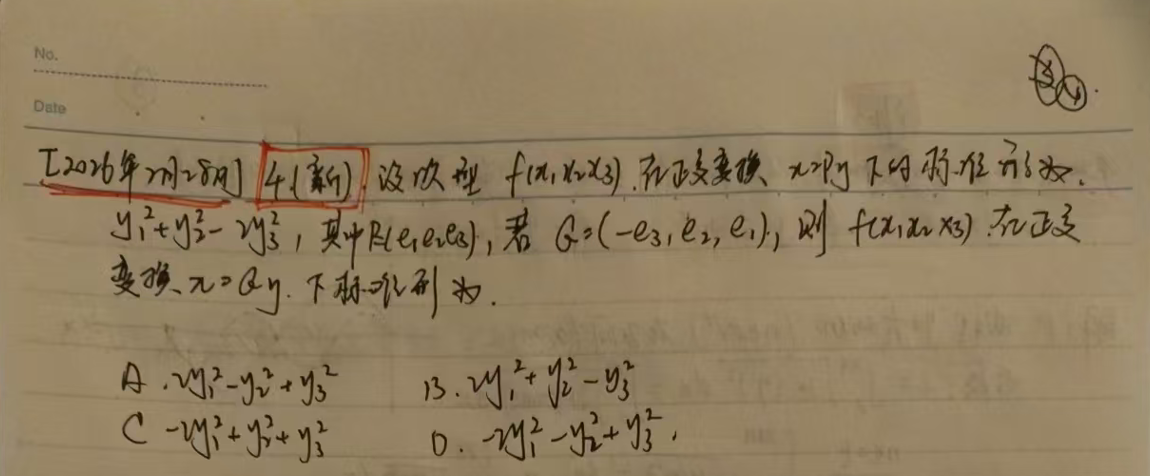 No.
Date
[2026年2月28日] 4.(新) 设次型 f(x₁x₂x₃) 在正交变换 x=Py 下的标准形为.
y₁²+y₂²-2y₃², 其中 P=(e₁e₂e₃), 若 Q=(-e₃, e₂, e₁), 则 f(x₁x₂x₃) 在正交
变换 x=Qy. 下标准型为.
A. 2y₁²-y₂²+y₃² B. 2y₁²+y₂²-y₃²
C -2y₁²+y₂²+y₃² D. -2y₁²-y₂²+y₃².